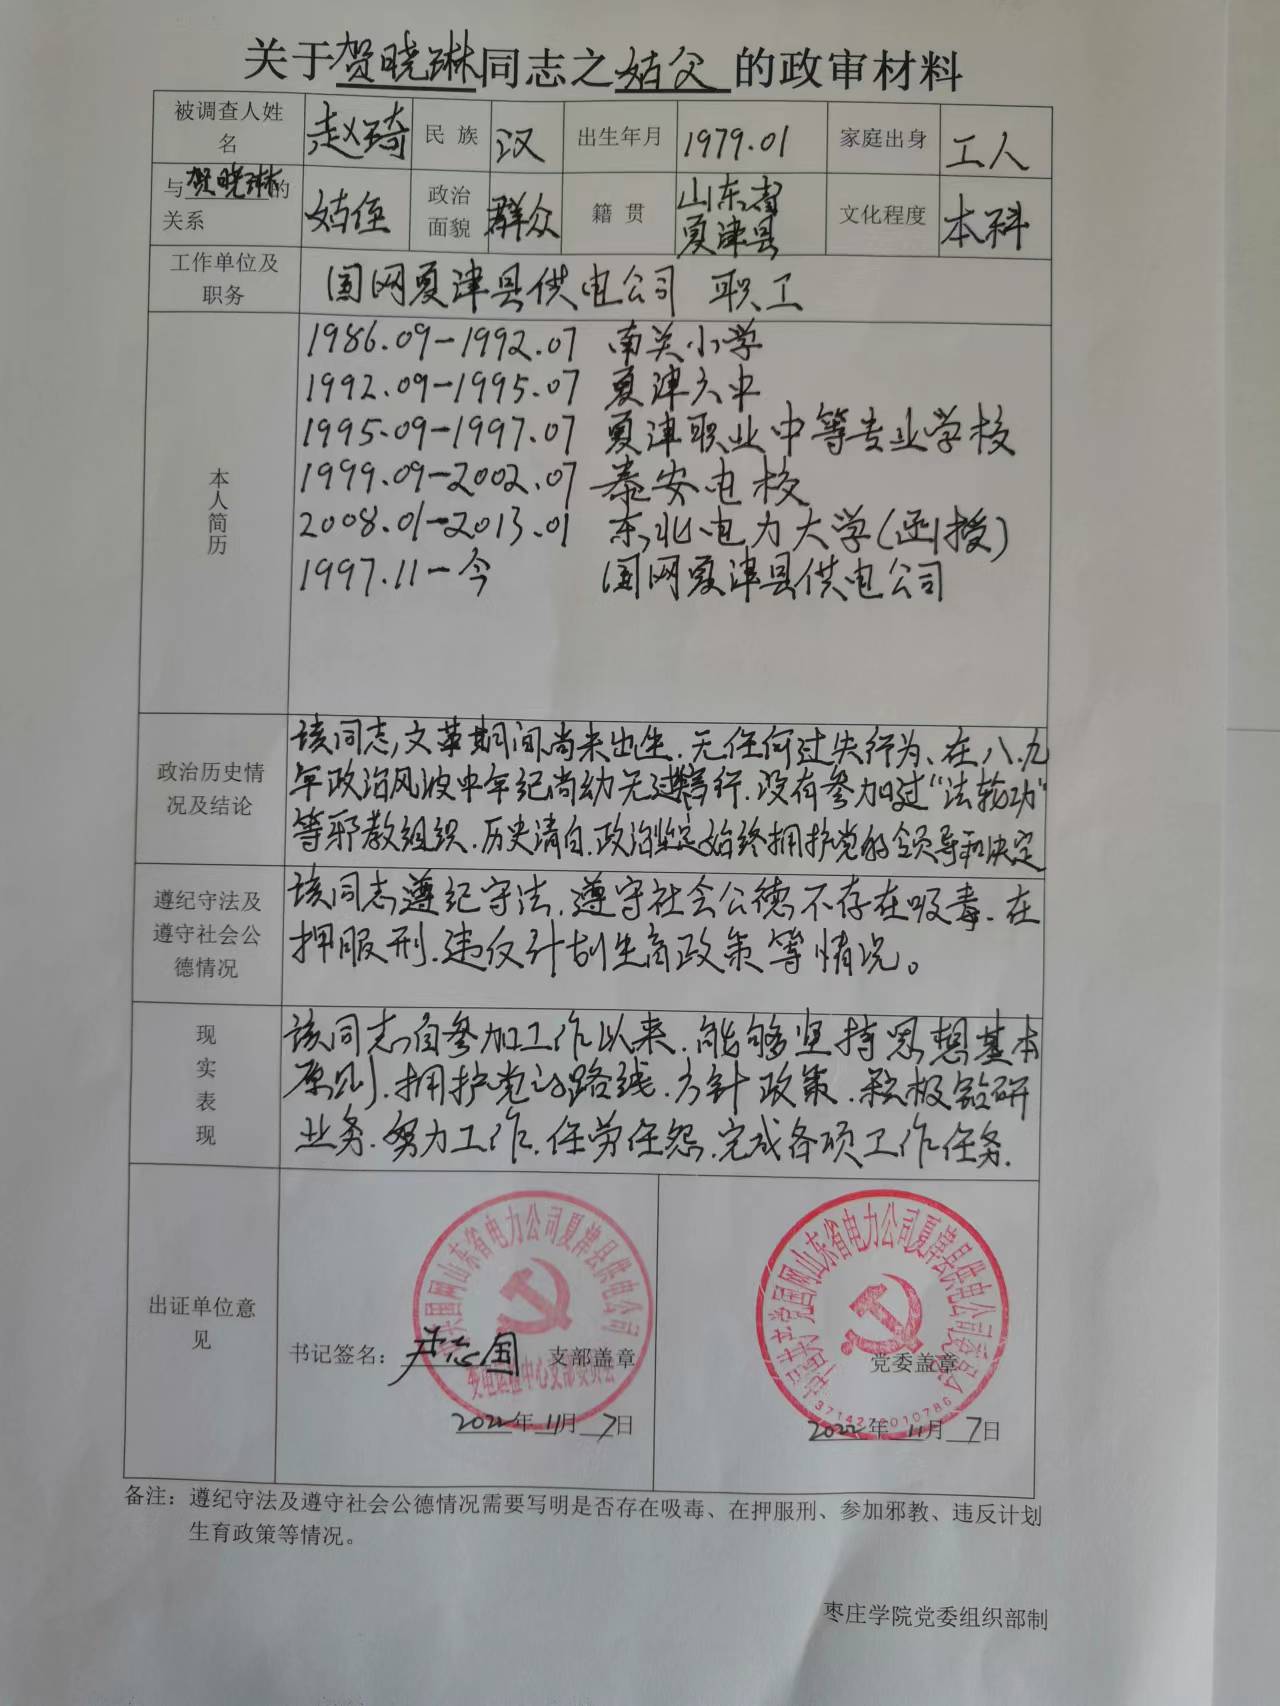 关于贺晓琳同志之姑父的政审材料
被调查人姓名 赵琦 民族 汉 出生年月 1979.01 家庭出身 工人
与贺晓琳的关系 姑侄 政治面貌 群众 籍贯 山东省夏津县 文化程度 本科
工作单位及职务 国网夏津县供电公司 职工
本人简历
1986.09-1992.07 南关小学
1992.09-1995.07 夏津六中
1995.09-1997.07 夏津职业中等专业学校
1999.09-2002.07 泰安电校
2008.01-2013.01 东北电力大学(函授)
1997.11-今 国网夏津县供电公司
政治历史情况及结论
该同志文革期间尚未出生,无任何过失行为、在八.九
年政治风波中年纪尚幼无过言行.没有参加过“法轮功”
等邪教组织.历史清白.政治坚定始终拥护党的领导和决定
遵纪守法及遵守社会公德情况
该同志遵纪守法.遵守社会公德不存在吸毒.在
押服刑.违反计划生育政策等情况。
现实表现
该同志自参加工作以来.能够坚持思想基本
原则.拥护党的路线.方针政策.积极钻研
业务.努力工作.任劳任怨.完成各项工作任务.
出证单位意见
国网山东省电力公司夏津县供电公司
变电运检中心支部委员会
书记签名: 尹志国 支部盖章
2022年11月7日
中国共产党国网山东省电力公司夏津县供电公司委员会
党委盖章
2022年11月7日
备注:遵纪守法及遵守社会公德情况需要写明是否存在吸毒、在押服刑、参加邪教、违反计划
生育政策等情况。
枣庄学院党委组织部制